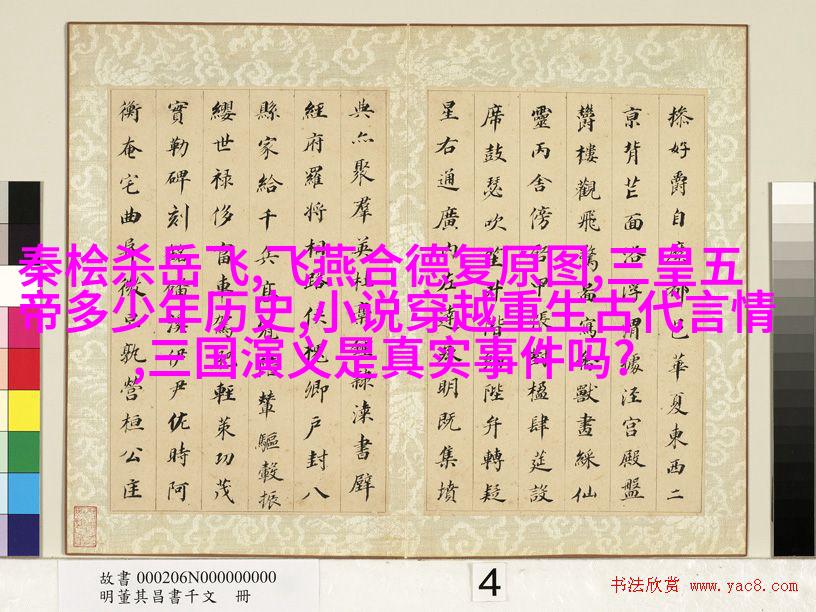 操好爵自縻都邑華夏東西二
京背芒面洛浮渭據涇宮殿盤
鬱樓觀飛驚啚寫禽獸畫綵仙
靈丙舍傍啓甲帳對楹肆筵設
席鼓瑟吹笙升階納陛弁轉疑
星右通廣內左達承明既集墳
典亦聚羣英杜稾鍾隸漆書壁
經府羅將相路俠槐卿戶封八
縣家給千兵高冠陪輦驅轂振
纓世祿侈富車駕肥輕策功茂
實勒碑刻銘磻溪伊尹佐時阿
衡奄宅曲阜微旦孰營桓公匡
秦桧杀岳飞,飞燕合德复原图,三皇五
帝多少年历史,小说穿越重生古代言情
,三国演义是真实事件吗?
故書 000206N000000000
明董其昌書千文 冊
4
书法欣赏 www.yac8.com